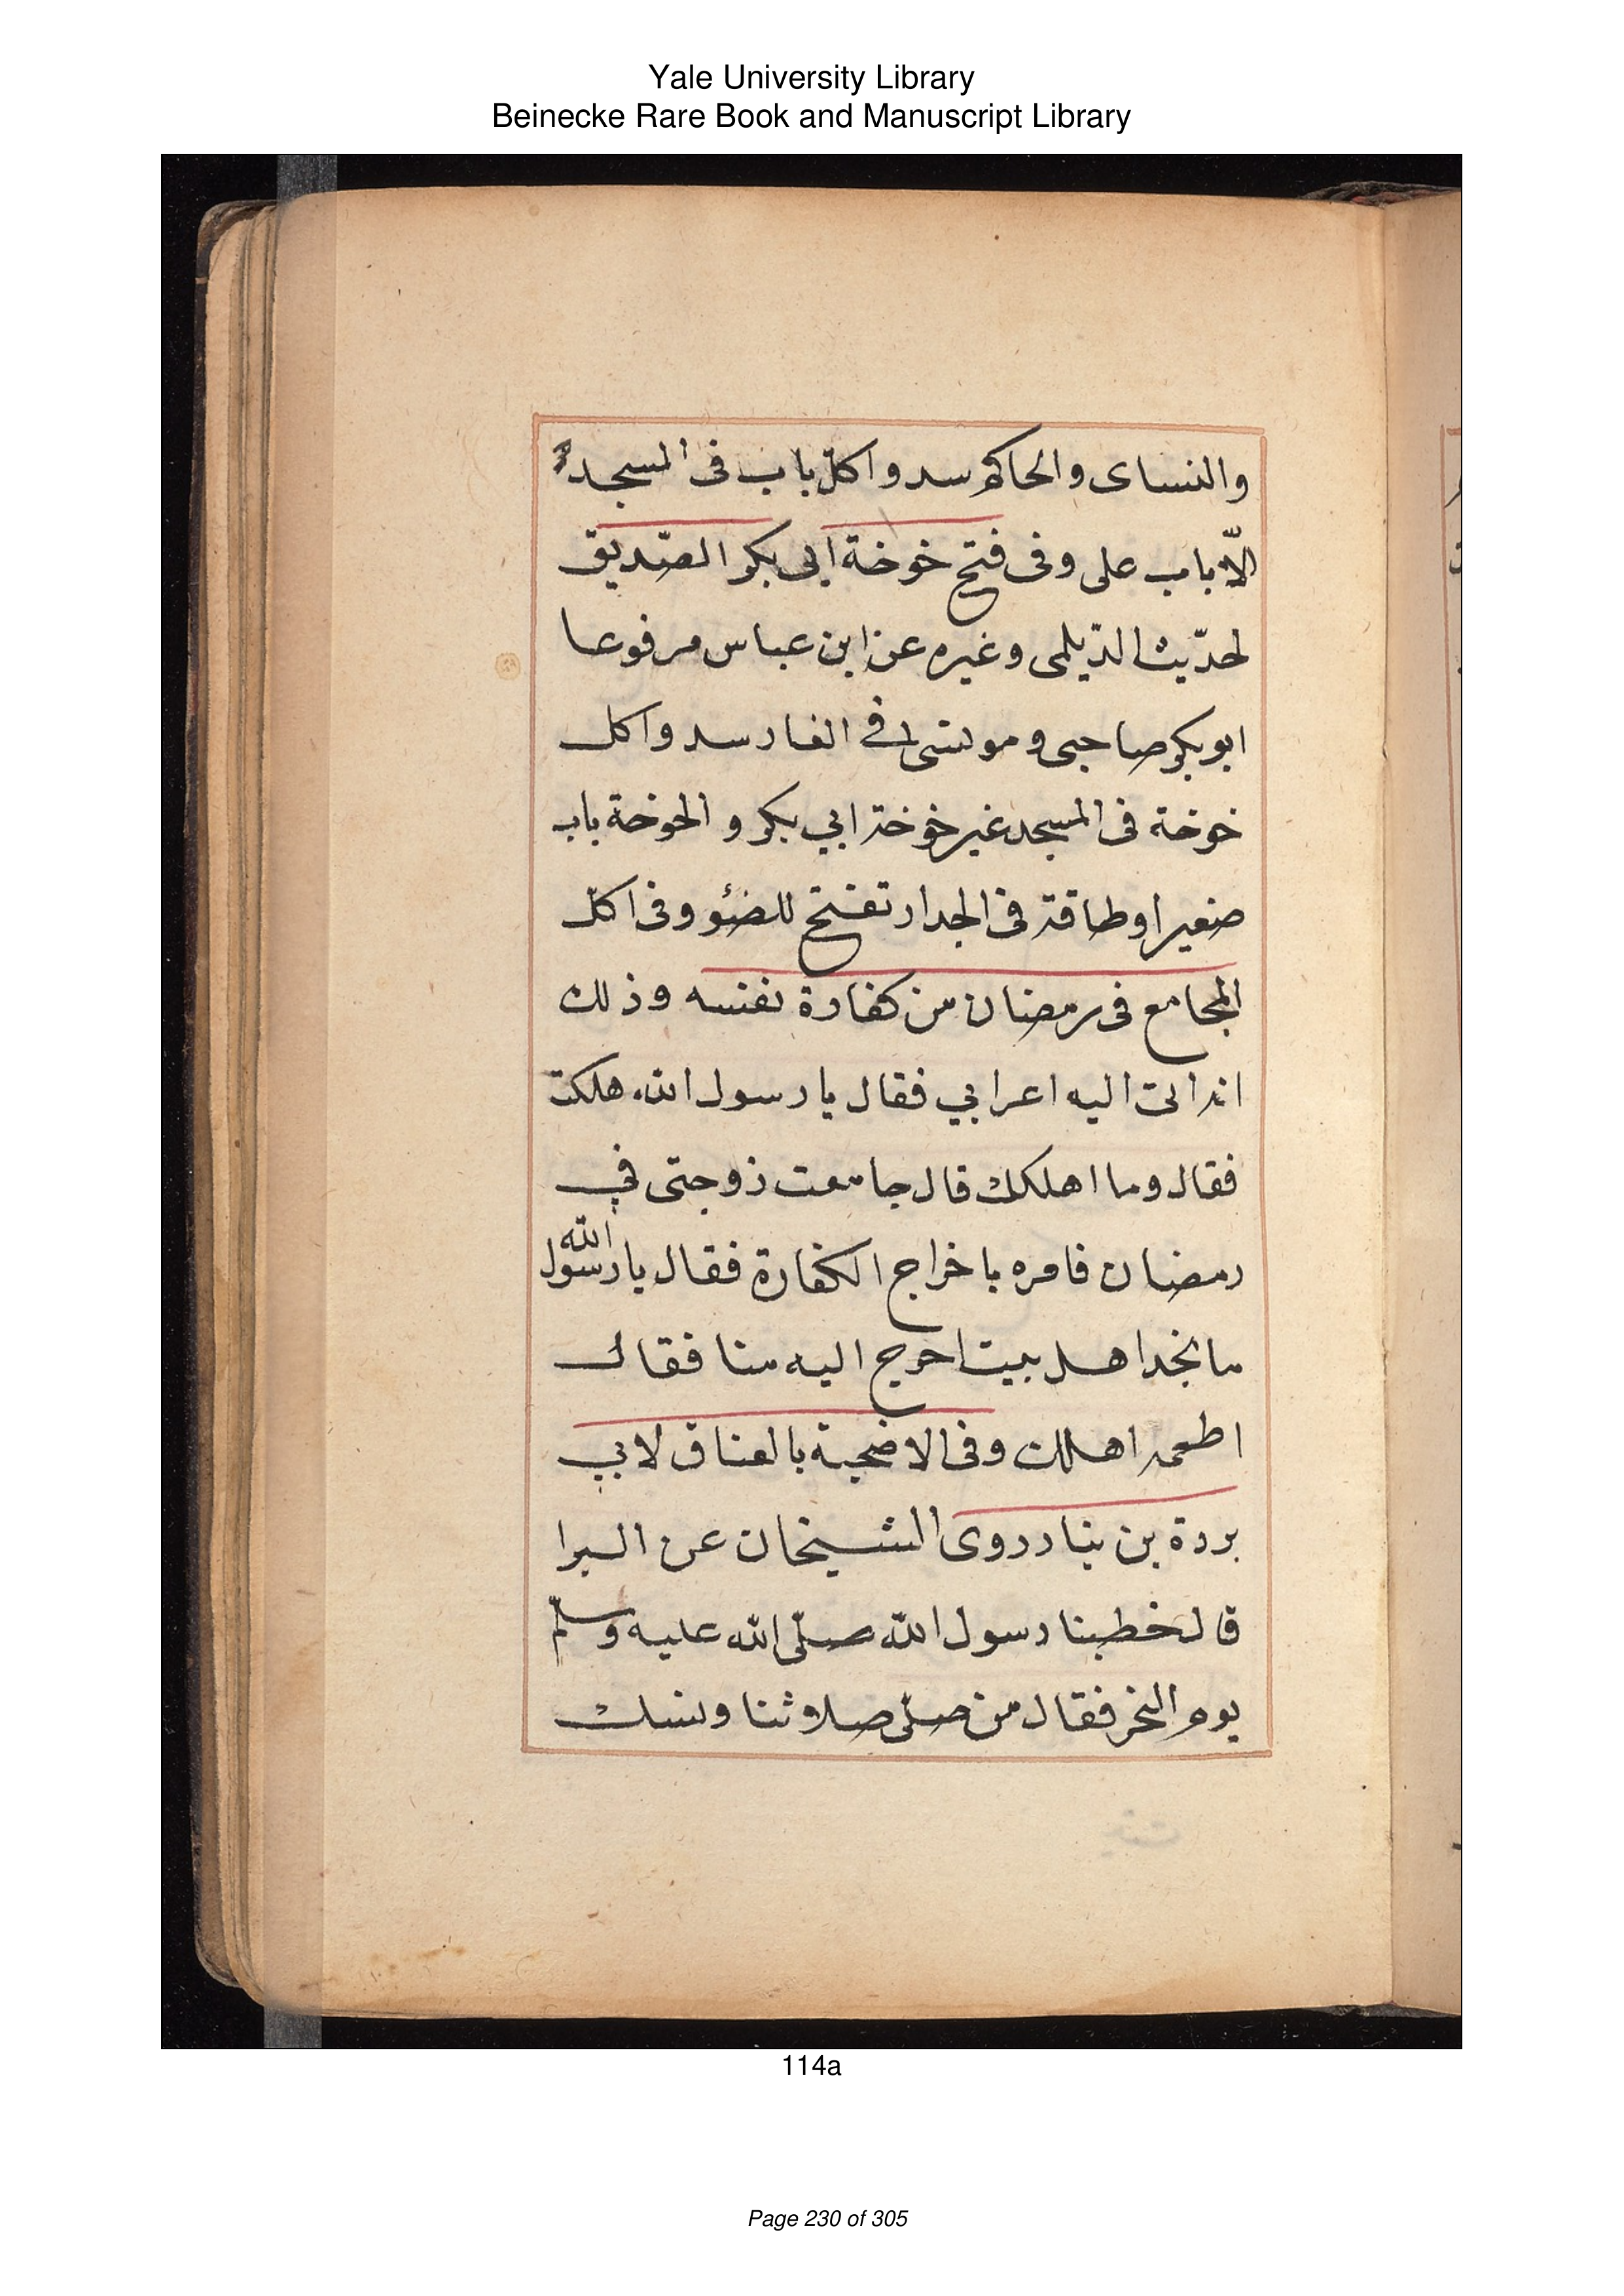 Yale University Library
Beinecke Rare Book and Manuscript Library
والنساى والحاكم سدوا كلّ باب فى المسجد
الّا باب على وفى فتح خوخة ابى بكر الصّديق
لحدّيث الدّيلمى وغيره عن ابن عباس مرفوعا
ابو بكر صاحبى و مونسى فى الغار سدوا كل
خوخة فى المسجد غير خوخة ابي بكر و الخوخة باب
صغير او طاقة فى الجدار تفتح للضئو وفى اكل
المجامع فى رمضان من كفارة نفسه وذلك
انه اتى اليه اعرابي فقال يا رسول الله هلكت
فقال وما اهلكك قال جامعت زوجتى في
رمضان فامره باخراج الكفارة فقال يا رسول الله
ما نجد اهل بيت احرج اليه منا فقال
اطعمه اهلك وفى الاضحية بالعناق لابي
بردة بن ينار روى الشيخان عن البرا
قال خطبنا رسول الله صلّى الله عليه وسلّم
يوم النحر فقال من صلّى صلاتنا ونسك
114a
Page 230 of 305